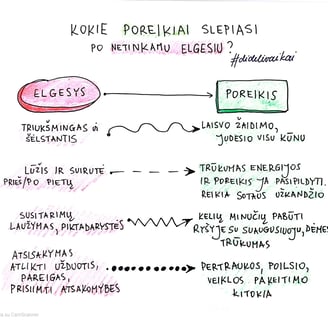 KOKIE POREIKIAI SLEPIASI
PO NETINKAMU ELGESIU?
#didelivaikai
ELGESYS
POREIKIS
TRIUKŠMINGAS ir
ŠĖLSTANTIS
LAISVO ŽAIDIMO,
JUDESIO VISU KŪNU
LŪŽIS IR SUIRUTĖ
PRIEŠ/PO PIETŲ
TRŪKUMAS ENERGIJOS
IR POREIKIS JĄ PASIPILDYTI.
REIKIA SOTAUS UŽKANDŽIO
SUSITARIMŲ
LAUŽYMAS, PIKTADARYSTĖS
KELIŲ MINUČIŲ PABŪTI
RYŠYJE SU SUAUGUSIUOJU, DĖMES
TRŪKUMAS
ATSISAKYMAS
ATLIKTI UŽDUOTIS,
PAREIGAS,
PRISIIMTI ATSAKOMYBĘS
PERTRAUKOS, POILSIO,
VEIKLOS PAKEITIMO
KITOKIA
CamScanner